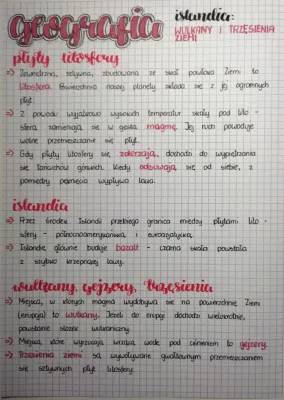 geografia
islandia:
WULKANY I TRZĘSIENIA
ZIEMI
płyty litosfery
⇒ Zewnętrzna, sztywna, zbudowana ze skał powłoka Ziemi to
litosfera. Powierzchnia naszej planety składa się z jej ogromnych
płyt.
⇒ Z powodu wyjątkowo wysokich temperatur skały pod lito -
sferą zamieniają się w gęstą magmę. Jej ruch powoduje
wolne przemieszczanie się płyt.
⇒ Gdy płyty litosfery się zderzają, dochodzi do wypiętrzania
się łańcuchów górskich. Kiedy odsuwają się od siebie, z
pomiędzy pęknięcia wypływa lawa.
islandia
⇒ Przez środek Islandii przebiega granica między płytami lito -
sfery - północnoamerykańską i euroazjatycką.
⇒ Islandię głównie buduje bazalt - czarna skała powstała
z szybko krzepnącej lawy.
wulkany, gejzery, trzęsienia
⇒ Miejsca, w których magma wydobywa się na powierzchnię Ziemi
(erupcja) to wulkany. Jeżeli do erupcji dochodzi wielokrotnie,
powstanie stożek wulkaniczny.
⇒ Miejsca, które wyrzucają wrzącą wodę pod ciśnieniem to gejzery.
⇒ Trzęsienia ziemi są wywoływane gwałtownym przemieszczaniem
się sztywnych płyt litosfery.